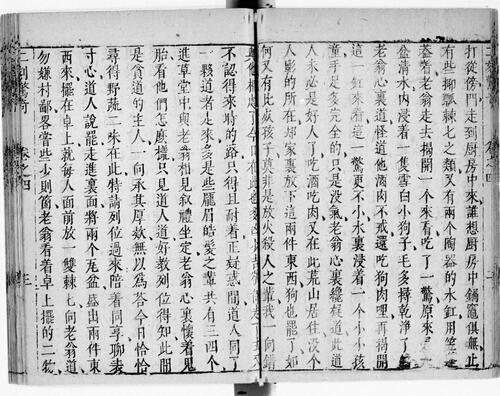 打從傍門走到厨房中來誰想厨房中鍋竈俱無止
有些㭨瓢棘匕之類又有兩个陶器的水缸用笠篷
葢着老翁走去揭開一个來看吃了一驚原來是一
盆清水内浸着一隻雪白小狗子毛多撏乾淨了的
老翁心裏道怪道他酒肉不戒還吃狗肉哩再揭開
這一缸來看這一驚更不小水裏浸着一个小小孩
童手足多完全的只是没氣老翁心裏纔疑道此道
人未必是好人了吃酒吃肉又在此荒山居住没个
人影的所在却家裏放下這兩件東西狗也罷了如
何又有此死孩子莫非是放火殺人之輩我一向錯
與他相處了今日在此也多
不認得來時的路只得且耐着正疑惑間道人同了
一夥道者走來多是些龐眉皓髮之輩共有三四个
進草堂中與老翁相見叙禮坐定老翁心裏懷着鬼
胎看他們怎麽樣只見道人道好教列位得知此間
是貧道的主人一向承其厚欵無以爲荅今日恰恰
尋得野蔬二味在此特請列位過來陪着同享聊表
寸心道人說罷走進裏面將兩个瓦盆盛出兩件東
西來擺在卓上就每人面前放一雙棘匕向老翁道
勿嫌村鄙畧嘗些少則箇老翁看着卓上擺的二物
二刻驚奇　卷之